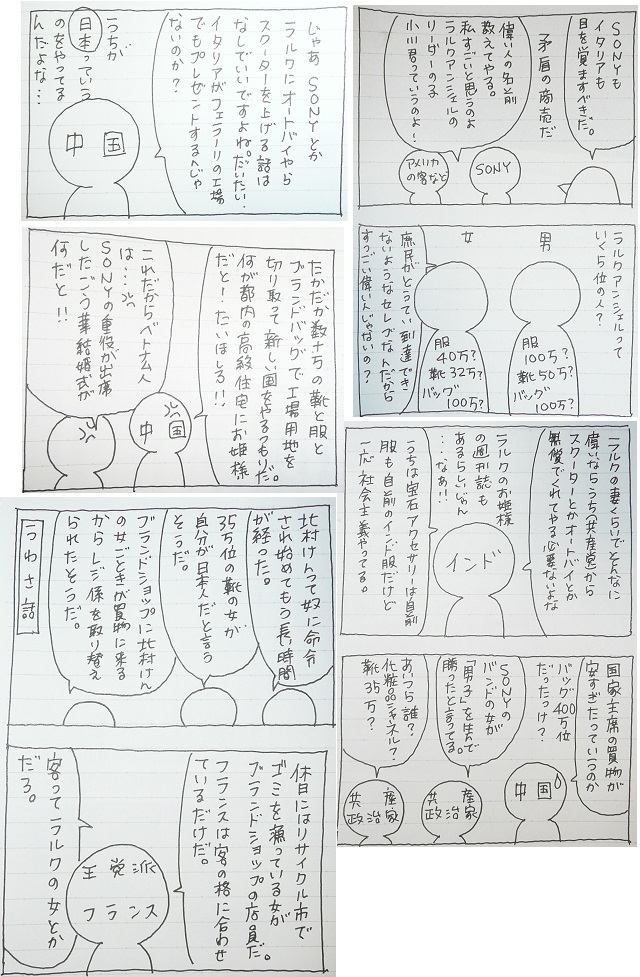 SONYも
イタリアも
目を覚ますべきだ。
矛盾の商売だ
偉い人の名前
教えてやる。
私すごいと思うのよ
ラルクアンシェルの
リーダーのる
小川君っていうのよ!
SONY
アメリカ
の客など
ラルクアンシェルって
いくら位の人?
男
女
服
100万?
靴50万?
バッグ
100万?
服
40万?
靴32万?
バッグ
100万?
庶民がとうてい到達でき
ないようなセレブなんだから
すっごい偉いんじゃないの?
ラルクの妻くらいでどんなに
偉いならうち(共産党)から
スクーターとかオートバイとか
無償でくれてやる必要ないよな
ラルクのお姫様
の週刊誌も
あるらしいじゃん
…なぁ!!
うちは宝石アクセサリーは自前
服も自前のインド服だけど
一応社会主義やってる。
インド
国家主席の買物が
安すぎたっていうのか
バッグ400万位
だったっけ?
中国
SONYの
バンドの女が
「男子」を生んで
勝ったと言ってる。
あいつら誰?
化粧品シャネル?
靴35万?
共産
政治家
共産
政治家
じゃあSONYとか
ラルクにオートバイやら
スクーターを上げる話は
なしでいいですよね。だいたい、
イタリアがフェラーリの工場
でもプレゼントするんじゃ
ないのか?
うちが
日本っていう
のをやってる
んだよな…
中国
たかだか数十万の靴と服と
ブランドバッグで工場用地を
切り取って新しい国をやるつもりだ。
何が都内の高級住宅にお姫様
だと!たいほしろ!!
中国
これだからベトナム人
は…
SONYの重役が出席
したごう華結婚式が
何だと!!
北村けんって奴に命令
され始めてもう長い時間
が経った。
35万位の靴の女が
自分が日本人だと言う
そうだ。
ブランドショップに北村けん
の女ごときが買物に来る
からレジ係を取り替え
られたとうだ。
うわさ話
休日にはリサイクル市で
ゴミを漁っている女が
ブランドショップの店員だ。
フランスは客の格に合わせ
ているだけだ。
王党派
フランス
客ってラルクの女とか
だろ。